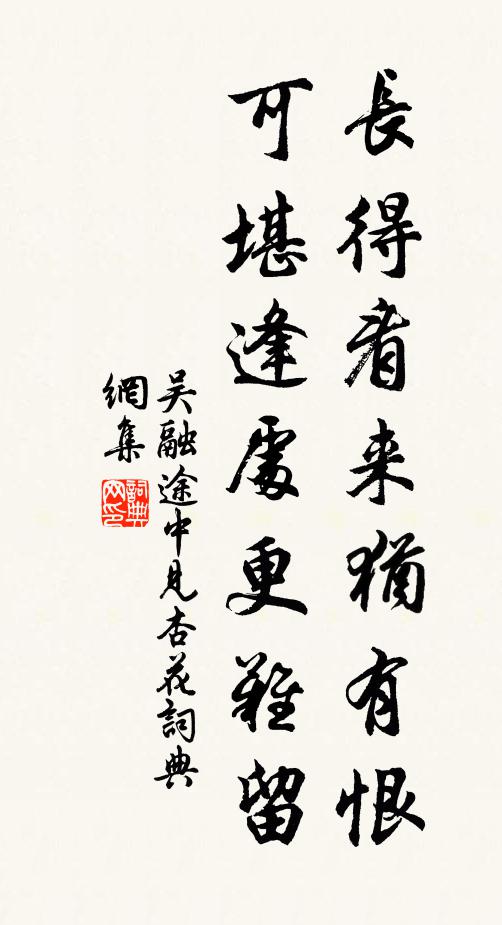 長得看来猶有恨
可堪逢處更難留
吳融途中見杏花詞典
網集
詞典
网印